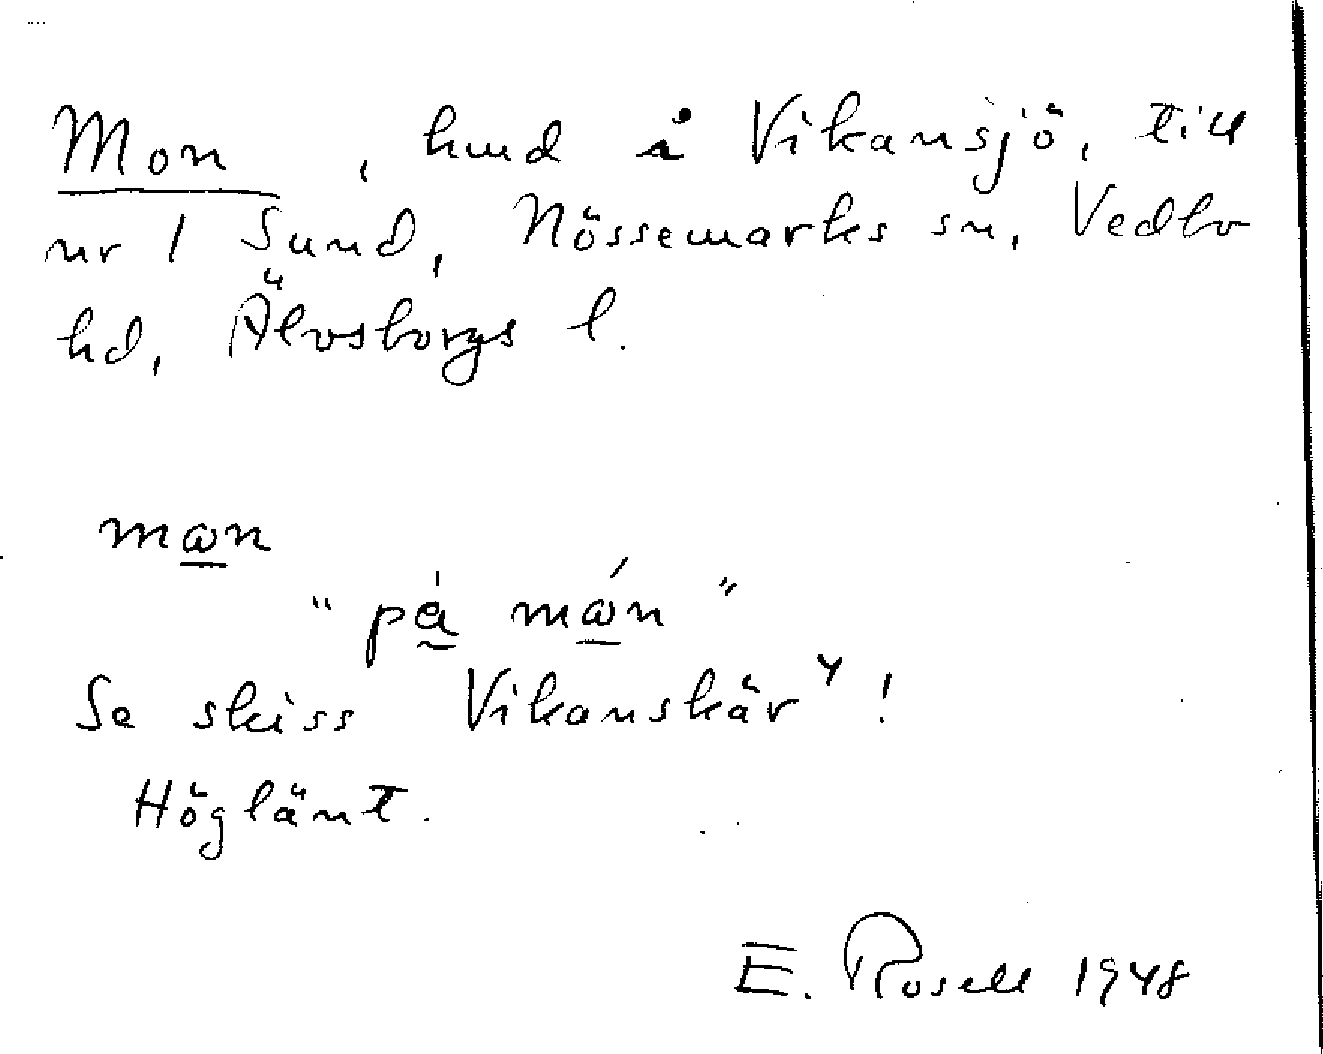 Mon, hmd i Vikansjö, till
nr 1 Sund, Nössemarks sn, Vedbo
hd, Älvsborgs l.
mωn
"på mώn"
Se skiss Vikanskär 4!
Höglänt.
E. Rosell 1948